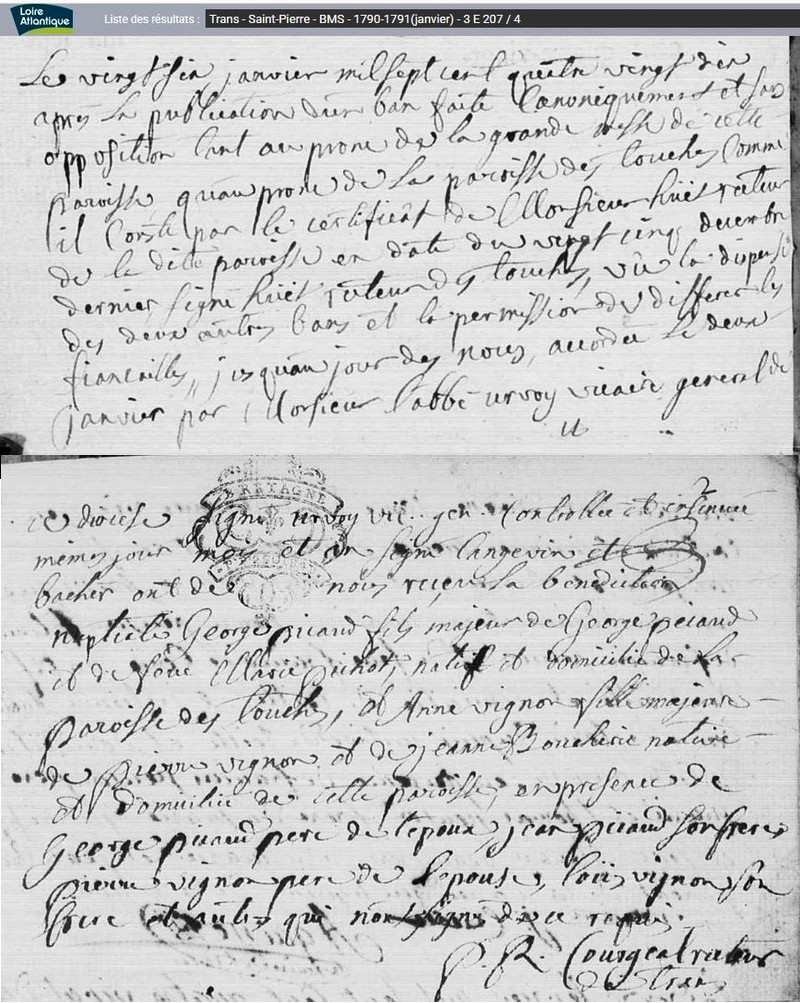 Loire
Atlantique
Liste des résultats : Trans - Saint-Pierre - BMS - 1790-1791(janvier) - 3 E 207 / 4
Le vingt six janvier mil sept cent quatre vingt dix
apres la publication d'un ban faite Canoniquement et sans
opposition tant au prone de la grande messe de cette
paroisse qu'au prone de la paroisse des touches Comme
il Conste par le certificat de Monsieur huet recteur
de la dite paroisse en date du vingt cinq decembre
dernier signé huet recteur des touches, vu la dispense
des deux autres bans et la permission de differer les
fiancailles, jusquau jour des noces, accordée le deux
janvier par Monsieur l'abbé urvoy vicaire general de
ce diocese signé urvoy vic. gen. Controllée et insinuée
mêmes jour mois et an signé langevin et
BRETAGNE
bacher ont de nous reçu la benediction
nuptiale George picaud fils majeur de George picaud
et de feue Marie natif et domicilié de la
paroisse des touches, et Anne vignon fille majeure
de pierre vignon et de jeanne Boucherie native
et domiciliée de cette paroisse, en presence de
George picaud pere de l'epoux, jean picaud son frere
pierre vignon pere de l'epouse, louis vignon son
frere et autres qui nont signé de ce requis.
P. R. Courgeal recteur
de Trans